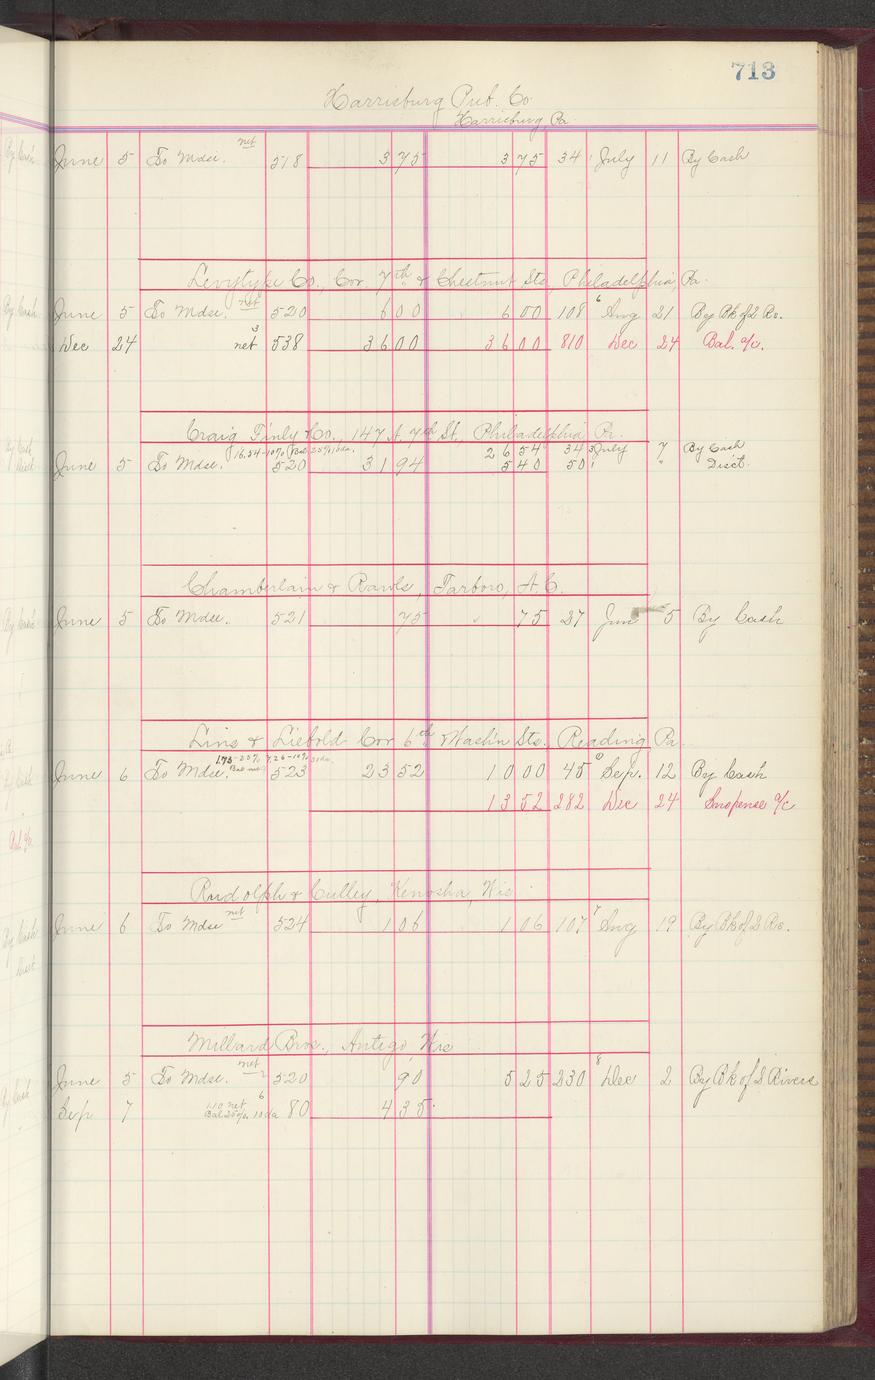 713
Harrisburg Pub. Co.
Harrisburg Pa.
June 5 To Mdse. net 518 3 75 3 75 34 July 11 By Cash
Levytype Co., Cor. 7th & Chestnut Sts., Philadelphia, Pa.
June 5 To Mdse. net 520 6 00 6 00 108 6 Aug 21 By Bk of 2 Rs.
Dec 24 net 3 538 36 00 36 00 810 Dec 24 Bal. a/c.
Craig Finly & Co., 147 N. 7th St., Philadelphia, Pa.
16.54-10% Bal 25% 10 da. 26 54 34 3 July 7 By Cash
June 5 To Mdse. 520 31 94 5 40 50 " Disct.
Chamberlain & Rawls, Tarboro, N.C.
June 5 To Mdse. 521 75 75 27 Jun 5 By Cash
Lins & Liebold Cor 6th & Wash'n Sts. Reading Pa.
1.73-25% 7.26-10% 30 da.
June 6 To Mdse. Bal net 523 23 52 10 00 45 Sep. 12 By Cash
13 52 282 Dec 24 Suspense a/c
Rudolph & Culley, Kenosha, Wis
June 6 To Mdse net 524 1 06 1 06 107 7 Aug 19 By Bk of 2 Rs.
Millard Bros., Antigo, Wis
June 5 To Mdse. net 2 520 90 5 25 230 8 Dec 2 By Bk of 2 Rivers
Sep 7 1.10 net 6 Bal 25% 10 da 80 4 35